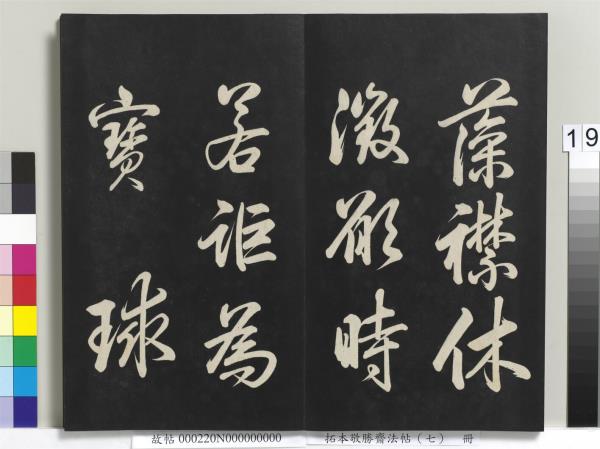 藻襟休
澂時
若詎為
寶球
故帖000220N000000000 拓本敬勝齋法帖(七) 冊
19